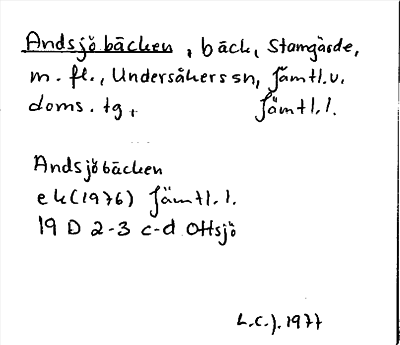 Andsjöbäcken, bäck, Stamgärde,
m. fl., Undersåkers sn, Jämtl. v.
doms. tg, Jämtl. l.
Andsjöbäcken
ek (1976) Jämtl. l.
19 D 2-3 c-d Ottsjö
L.C.J. 1977